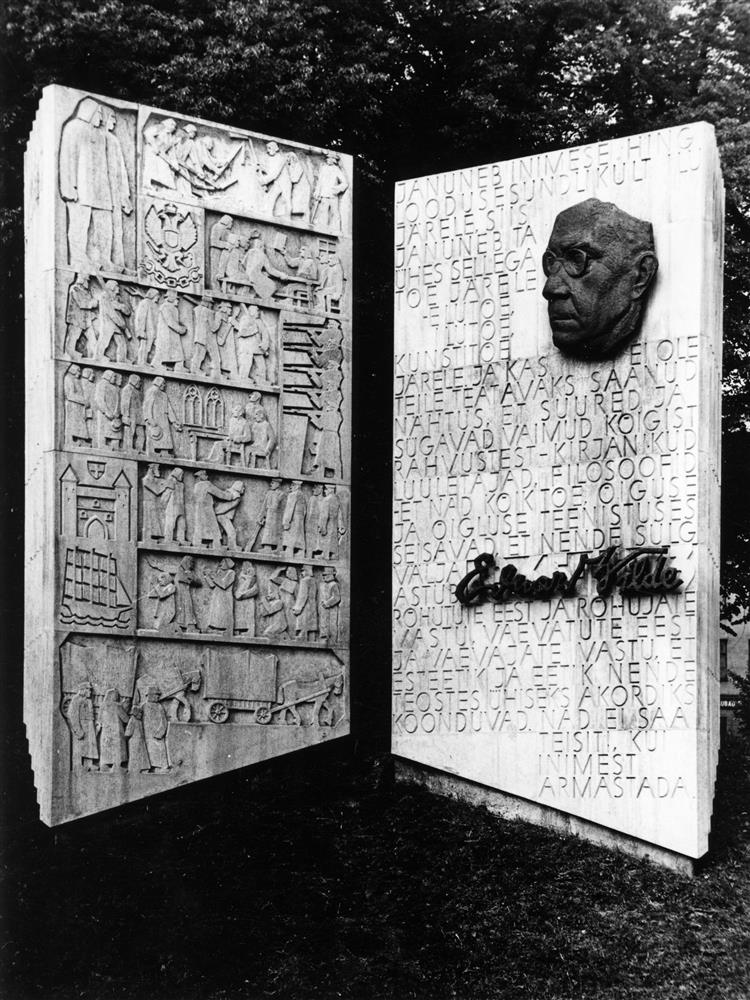 JANUNEB INIMESE HING
JOODUSESÜNDLIKULT ILU
JÄRELE, SIIS
JANUNEB TA
ÜHES SELLEGA
TÕE JÄRELE
ILUTÕE,
KUNSTITÕE
JÄRELE. JA KAS EI OLE
TEILE TEATAVAKS SAANUD
NÄHTUS, ET SUURED JA
SÜGAVAD VAIMUD KÕIGIST
RAHVUSTEST - KIRJANIKUD
LUULETAJAD, FILOSOOFID
ET NAD KÕIK TÕE, ÕIGUSE
JA ÕIGLUSE TEENISTUSES
SEISAVAD, ET NENDE SULG
VÄLJA
ASTU
RÕHUTUTE EEST JA RÕHUJATE
VASTU, VAEVATUTE EEST
JA VAEVAJATE VASTU, ET
ESTEETIK JA EETIK NENDE
TEOSTES ÜHISEKS AKORDIKS
KOONDUVAD. NAD EI SAA
TEISITI, KUI
INIMEST
ARMASTADA.
Eduard Vilde